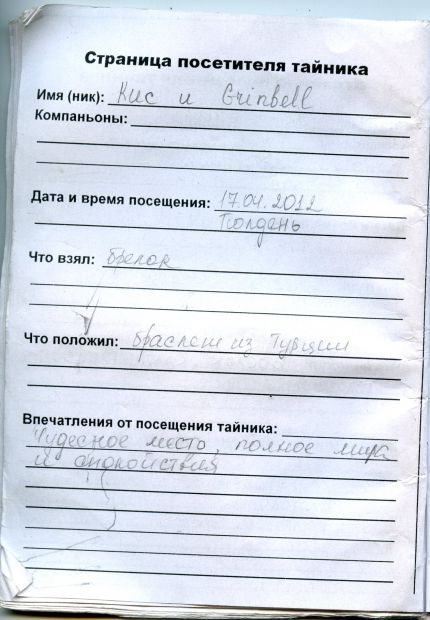 Страница посетителя тайника
Имя (ник): Кис и Grinbell
Компаньоны:
Дата и время посещения: 17.04.2012
Полдень
Что взял: брелок
Что положил: браслет из Турции
Впечатления от посещения тайника:
Чудесное место, полное мира
и спокойствия